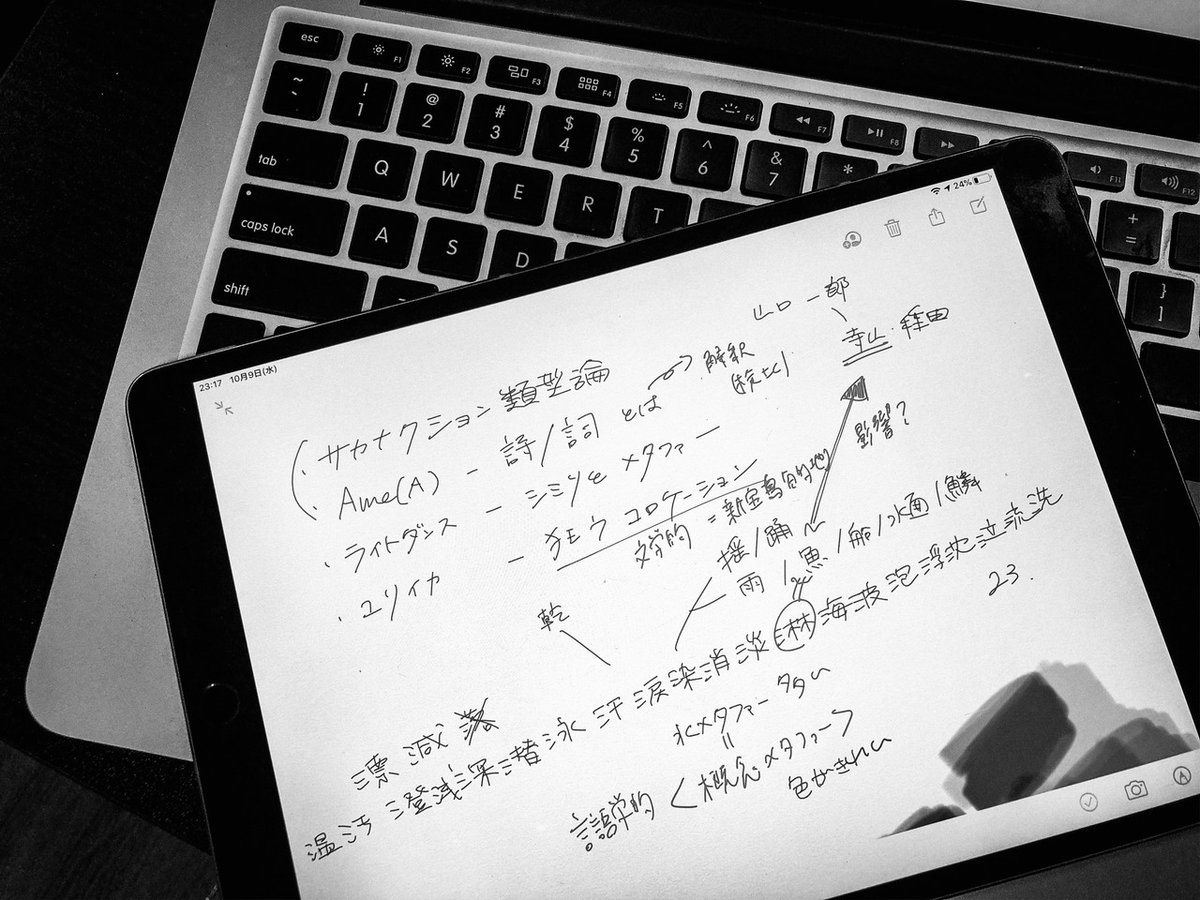 esc F1 F2 F3 F4 F5 F6 F7 F8 F11 F12
~ ! 1 @ 2 # 3 $ 4 % 5 ^ 6 & 7 * + =
tab Q W E R T } ]
caps lock A S D
shift
23:17 10月9日(水)
24%
山口一郎
寺山・稲田
・サカナクション類型論
解釈
較比
・Ame(A) - 詩/詞とは
・ライトダンス - シミリとメタファー
影響?
・ユリイカ - 狂ウコロケーション
文学的 = 新宝島
揺/踊
雨/魚/船/水面/鱗
乾
漂減
温汚澄浅深潜泳汗涙染消淡淋海波泡浮沈泣流洗
23.
水メタファー多い
||
語学的 <概念メタファー>
色がきれい